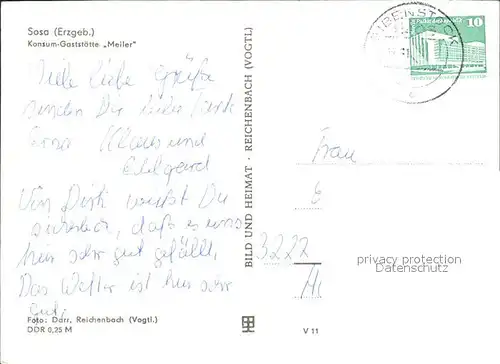 Sosa (Erzgeb.)
Konsum-Gaststätte „Meiler"
Viele liebe Grüße
senden Dir
Klaus und
Edelgard
Von Dirk weißt Du
sicherlich, daß es uns
hier sehr gut gefällt.
Das Wetter ist hier sehr
gut.
Foto: Darr, Reichenbach (Vogtl.)
DDR 0,25 M
BILD UND HEIMAT · REICHENBACH (VOGTL.)
V 11
10
Frau
3222
privacy protection
Datenschutz